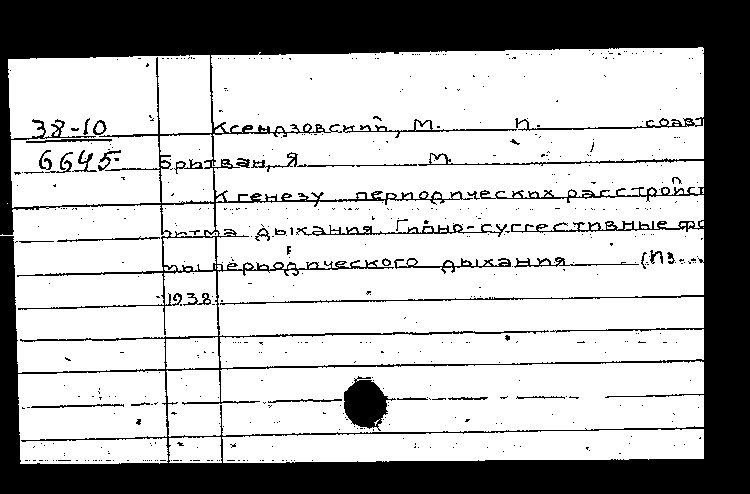 38-10
6645
Ксендзовский, М. И. соавт
Бритван, Я. М.
К генезу периодических расстройст
ритма дыхания. Гипно-суггестивные фо
мы периодического дыхания (Из...
1938.